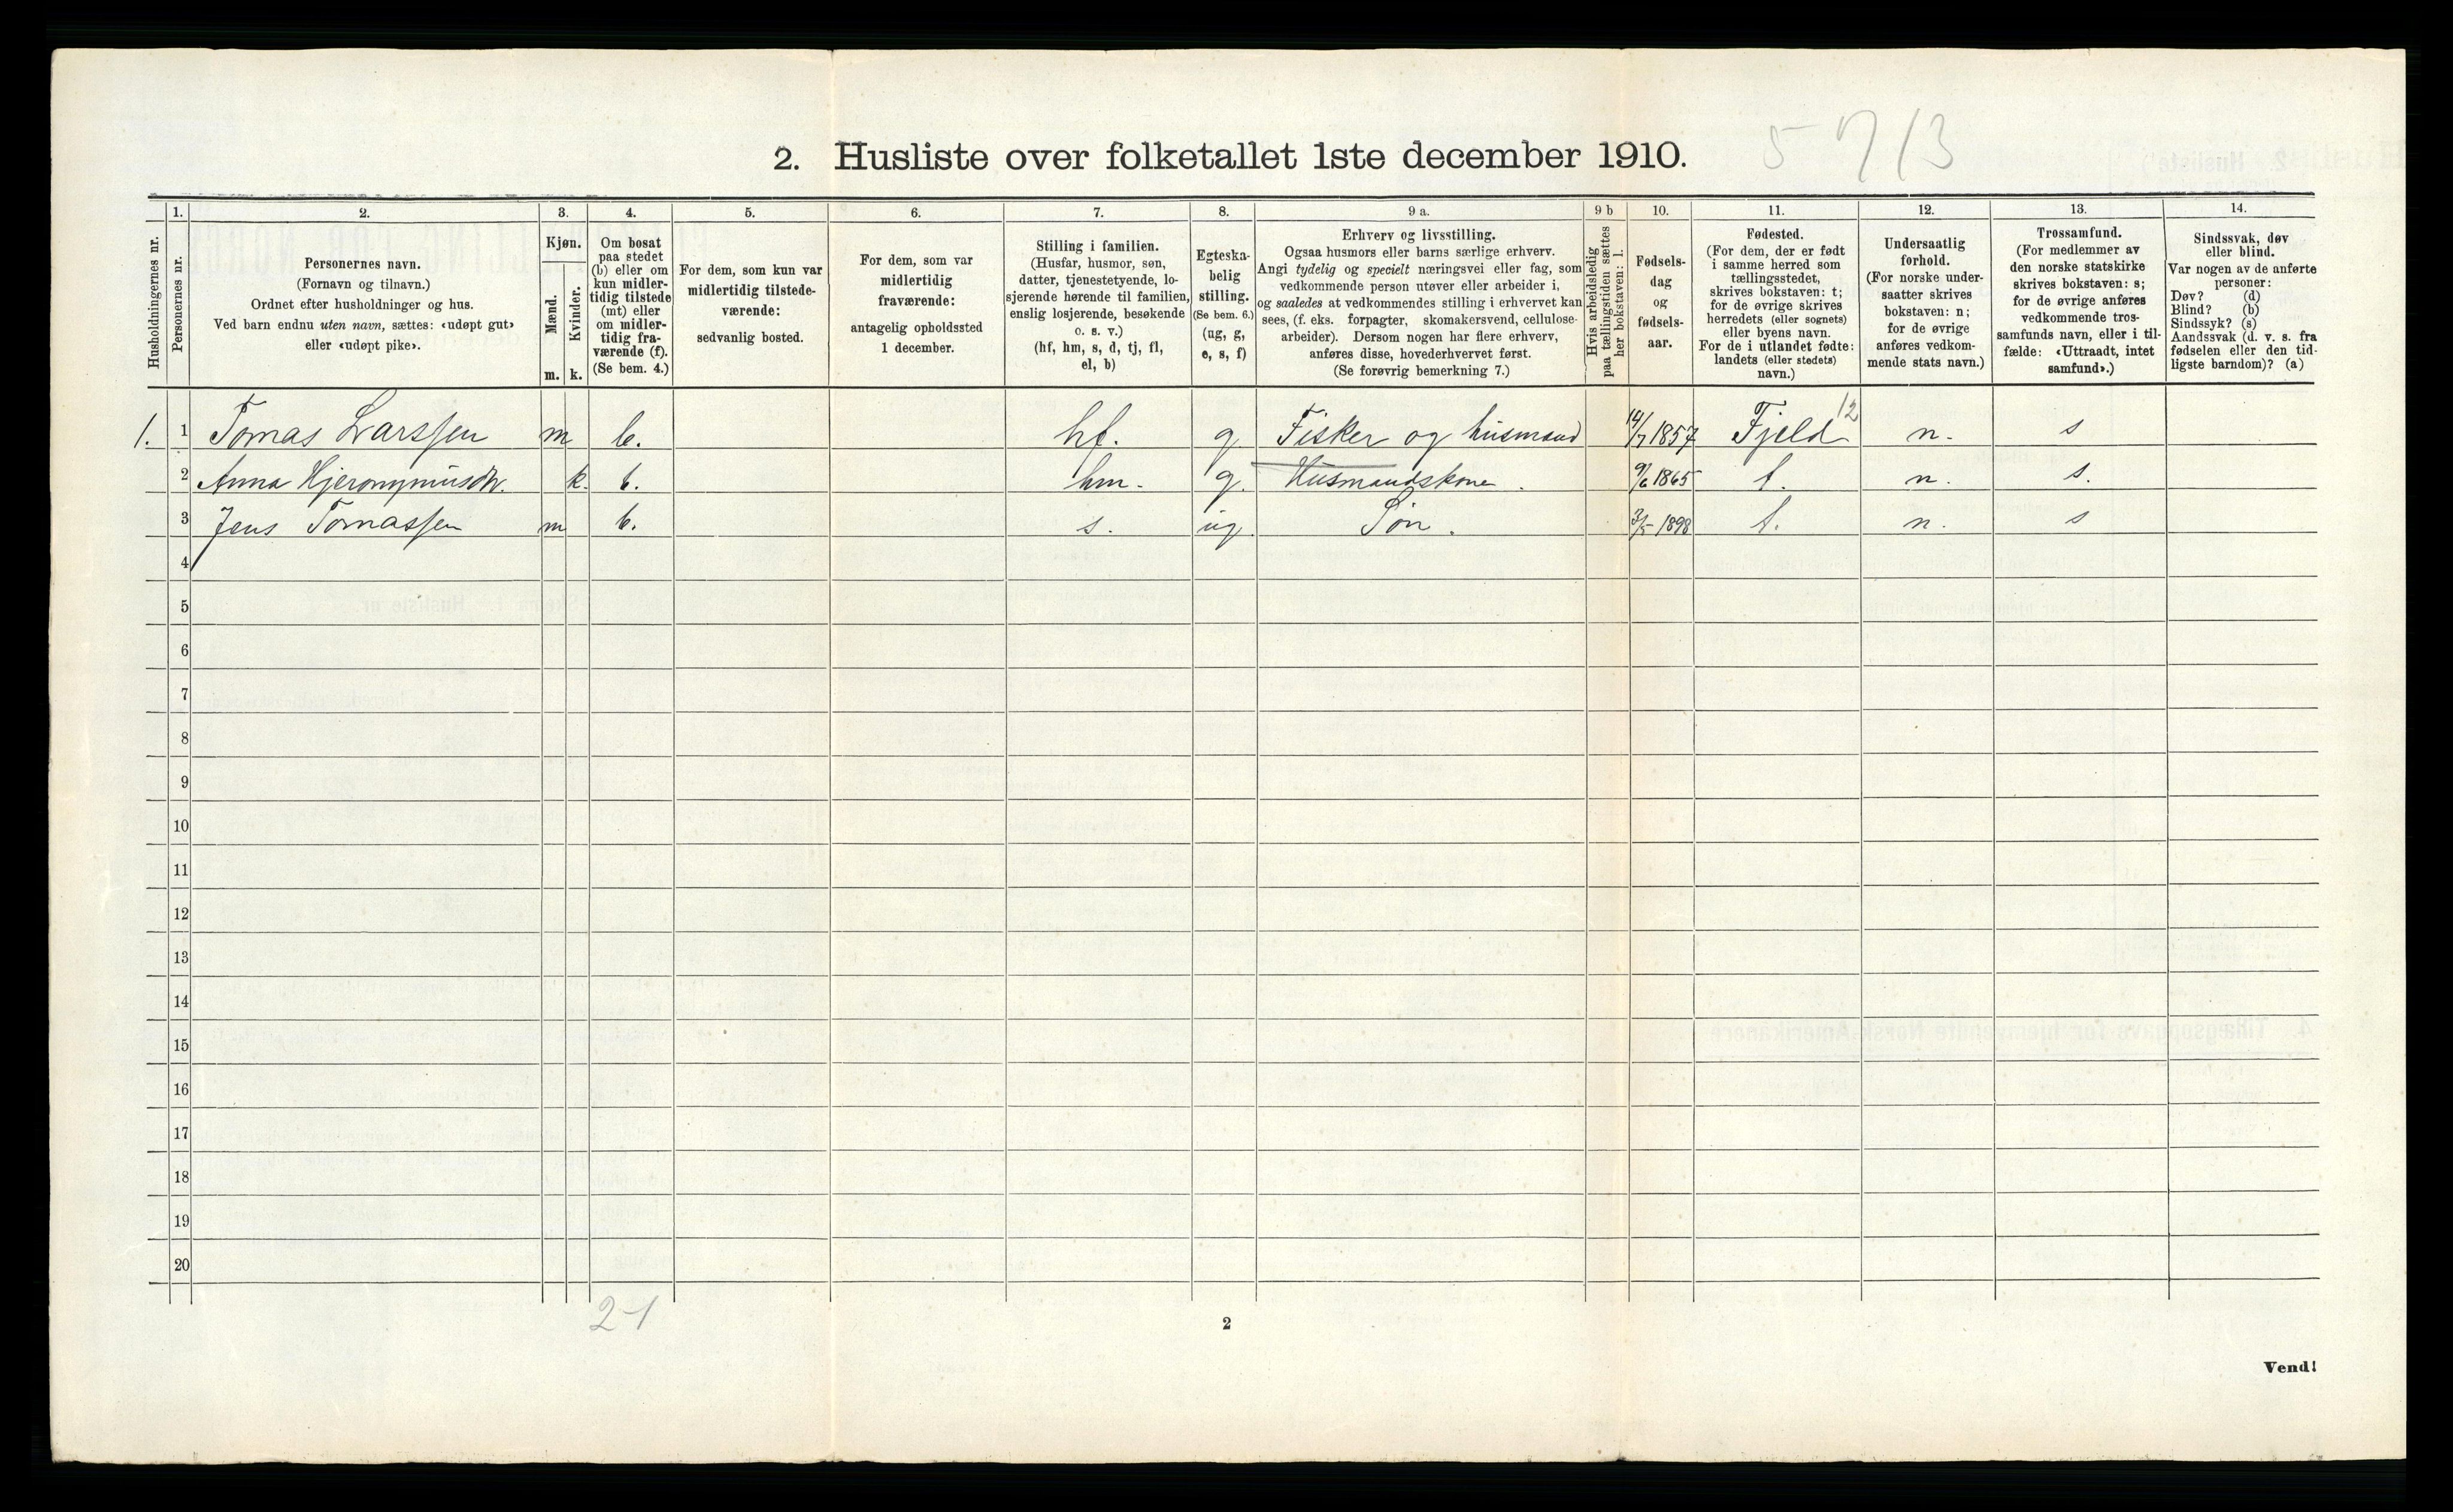 5713
2. Husliste over folketallet 1ste december 1910.
Husholdningernes nr.
1.
Personernes nr.
2.
Personernes navn.
(Fornavn og tilnavn.)
Ordnet efter husholdninger og hus.
Ved barn endnu uten navn, sættes: «udøpt gut»
eller «udøpt pike».
3.
Kjøn.
Mænd.
Kvinder.
m. k.
4.
Om bosat
paa stedet
(b) eller om
kun midler-
tidig tilstede
(mt) eller
om midler-
tidig fra-
værende (f).
(Se bem. 4.)
5.
For dem, som kun var
midlertidig tilstede-
værende:
sedvanlig bosted.
6.
For dem, som var
midlertidig
fraværende:
antagelig opholdssted
1 december.
7.
Stilling i familien.
(Husfar, husmor, søn,
datter, tjenestetyende, lo-
sjerende hørende til familien,
enslig losjerende, besøkende
o. s. v.)
(hf, hm, s, d, tj, fl,
el, b)
8.
Egteska-
belig
stilling.
(Se bem. 6.)
(ug, g,
e, s, f)
9 a.
Erhverv og livsstilling.
Ogsaa husmors eller barns særlige erhverv.
Angi tydelig og specielt næringsvei eller fag, som
vedkommende person utøver eller arbeider i,
og saaledes at vedkommendes stilling i erhvervet kan
sees, (f. eks. forpagter, skomakersvend, cellulose-
arbeider). Dersom nogen har flere erhverv,
anføres disse, hovederhvervet først.
(Se forøvrig bemerkning 7.)
9 b
Hvis arbeidsledig
paa tællingstiden sættes
her bokstaven: l.
10.
Fødsels-
dag
og
fødsels-
aar.
11.
Fødested.
(For dem, der er født
i samme herred som
tællingsstedet,
skrives bokstaven: t;
for de øvrige skrives
herredets (eller sognets)
eller byens navn.
For de i utlandet fødte:
landets (eller stedets)
navn.)
12.
Undersaatlig
forhold.
(For norske under-
saatter skrives
bokstaven: n;
for de øvrige
anføres vedkom-
mende stats navn.)
13.
Trossamfund.
(For medlemmer av
den norske statskirke
skrives bokstaven: s;
for de øvrige anføres
vedkommende tros-
samfunds navn, eller i til-
fælde: «Uttraadt, intet
samfund».)
14.
Sindssvak, døv
eller blind.
Var nogen av de anførte
personer:
Døv? (d)
Blind? (b)
Sindssyk? (s)
Aandssvak (d. v. s. fra
fødselen eller den tid-
ligste barndom)? (a)
1. 1 Tomas Larssen m b. hf. g. Fisker og husmand 14/7 1857 Fjeld 12 n. s
2 Anna Hjeronymusdtr. k. b. hm. g. Husmandskone. 9/6 1865 t. n. s.
3 Jens Tomassen m b. s. ug. Søn. 1898 t. n. s
4
5
6
7
8
9
10
11
12
13
14
15
16
17
18
19
20
2-1
2
Vend!